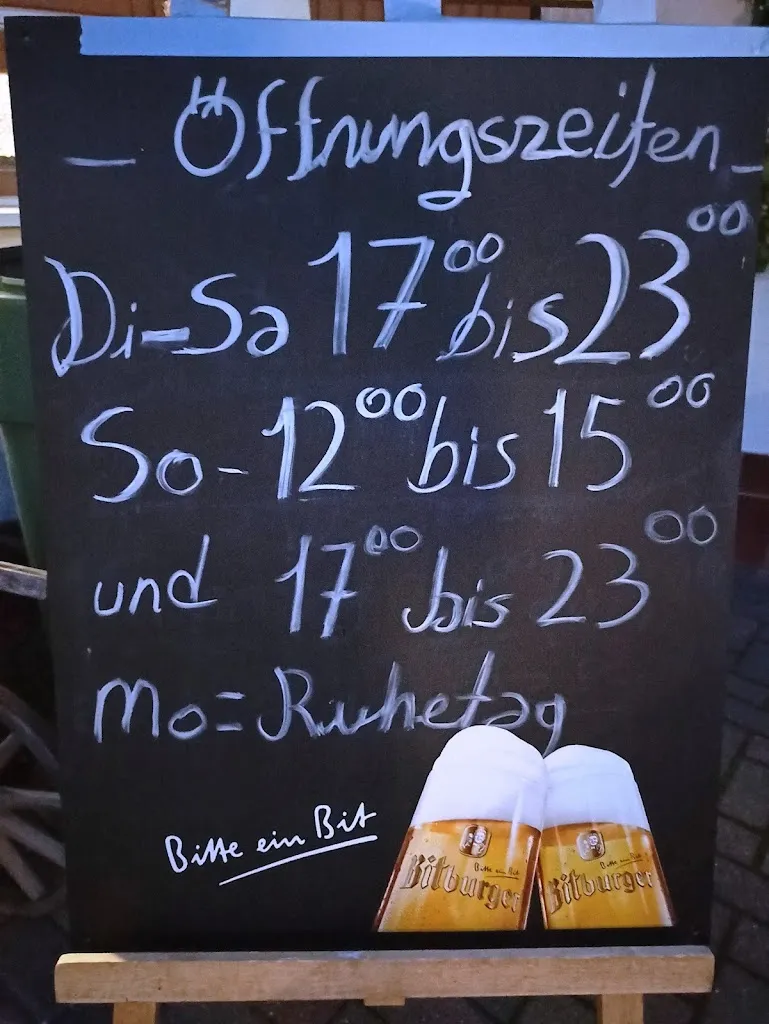 — Öffnungszeiten —
Di-Sa 17⁰⁰ bis 23⁰⁰
So - 12⁰⁰ bis 15⁰⁰
und 17⁰⁰ bis 23⁰⁰
Mo = Ruhetag
Bitte ein Bit
Bitte ein Bit Bitte ein Bit
Bitburger Bitburger